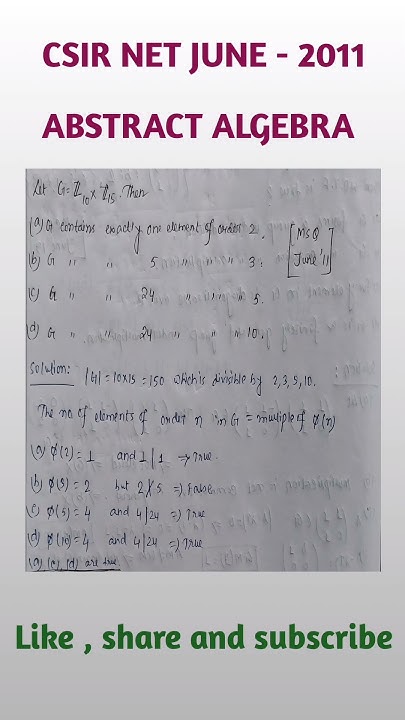 CSIR NET JUNE - 2011
ABSTRACT ALGEBRA
Let G = ℤ₁₀ × ℤ₁₅. Then
(a) G contains exactly one element of order 2.
[MSQ June'11]
(b) G " " 5 " " " 3.
(c) G " " 24 " " " 5.
(d) G " " 24 " " " 10.
Solution: |G| = 10×15 = 150 which is divisible by 2, 3, 5, 10.
The no of elements of order n in G = multiple of ϕ(n)
(a) ϕ(2) = 1 and 1|1 → True.
(b) ϕ(3) = 2 but 2∤5 ⇒ False
(c) ϕ(5) = 4 and 4|24 ⇒ True
(d) ϕ(10) = 4 and 4|24 ⇒ True
(a) (c), (d) are true.
Like , share and subscribe